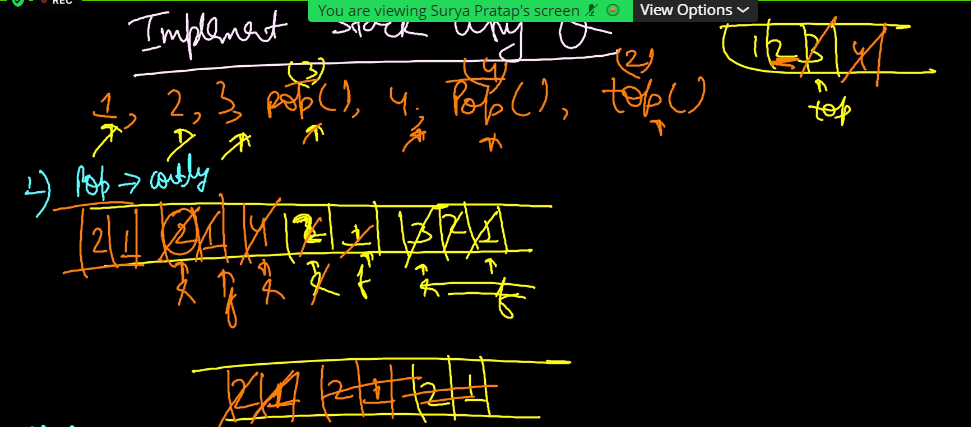 REC
You are viewing Surya Pratap's screen
View Options
Implement Stack using Q
(3) (4) (2)
1, 2, 3, pop(), 4, Pop(), top()
1 2 3 4
top
1) Pop → costly
2 1 2 1 4 2 1 3 2 1
f f f
2 1 2 1 2 1